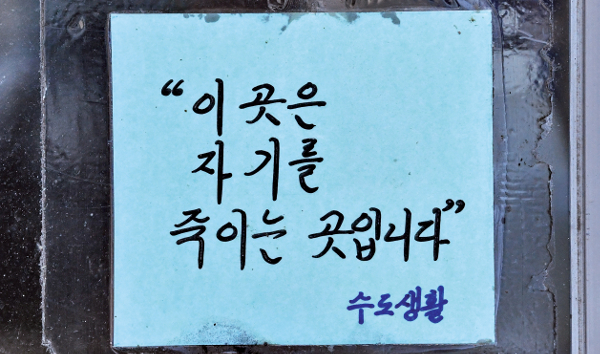 “이 곳은
자기를
죽이는 곳입니다”
수도생활